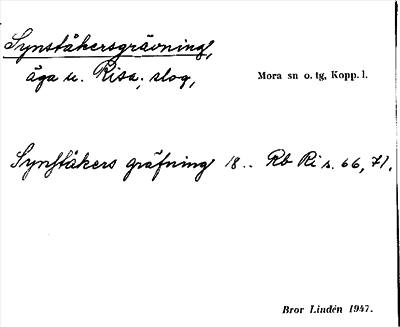 Synståkersgrävning,
äga u. Risa, slog,
Mora sn o. tg, Kopp. l.
Synståkers gräfning 18.. Rb Ri s. 66, 71.
Bror Lindén 1947.